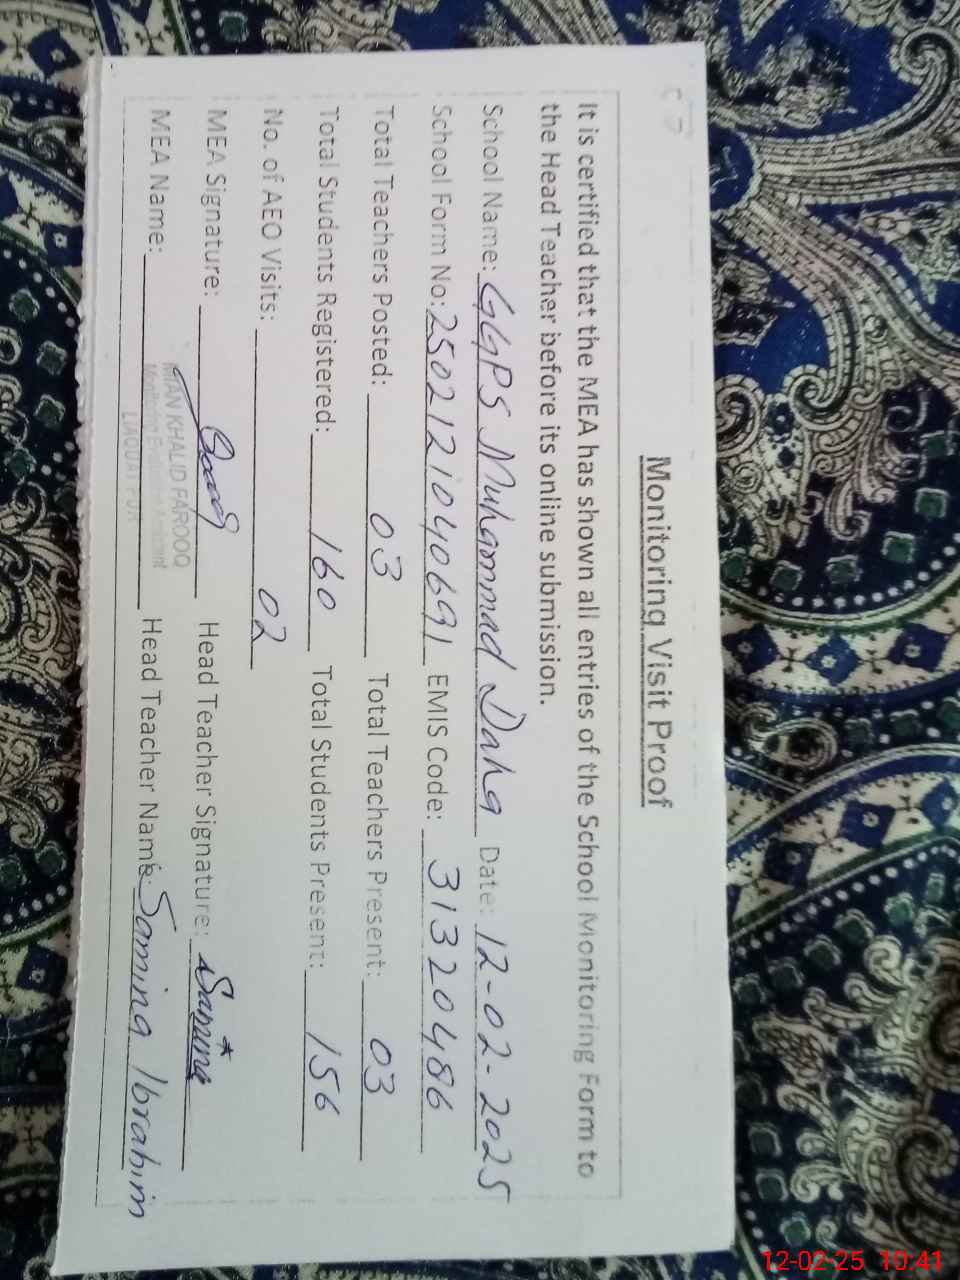 Monitoring Visit Proof
It is certified that the MEA has shown all entries of the School Monitoring Form to
the Head Teacher before its online submission.
School Name: GGPS Muhammad Daha Date: 12-02-2025
School Form No: 2502121040691 EMIS Code: 31320486
Total Teachers Posted: 03 Total Teachers Present: 03
Total Students Registered: 160 Total Students Present: 156
No. of AEO Visits: 02
MEA Signature: Head Teacher Signature: Samina
MIAN KHALID FAROOQ
MEA Name: Head Teacher Name: Samina Ibrahim
LIAQUAT PUR
12-02-25 10:41